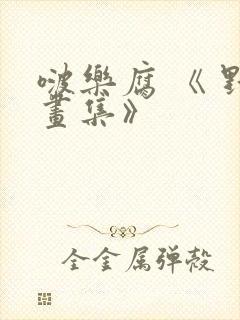 啵樂腐 《野
畫集》
全金属弹殼